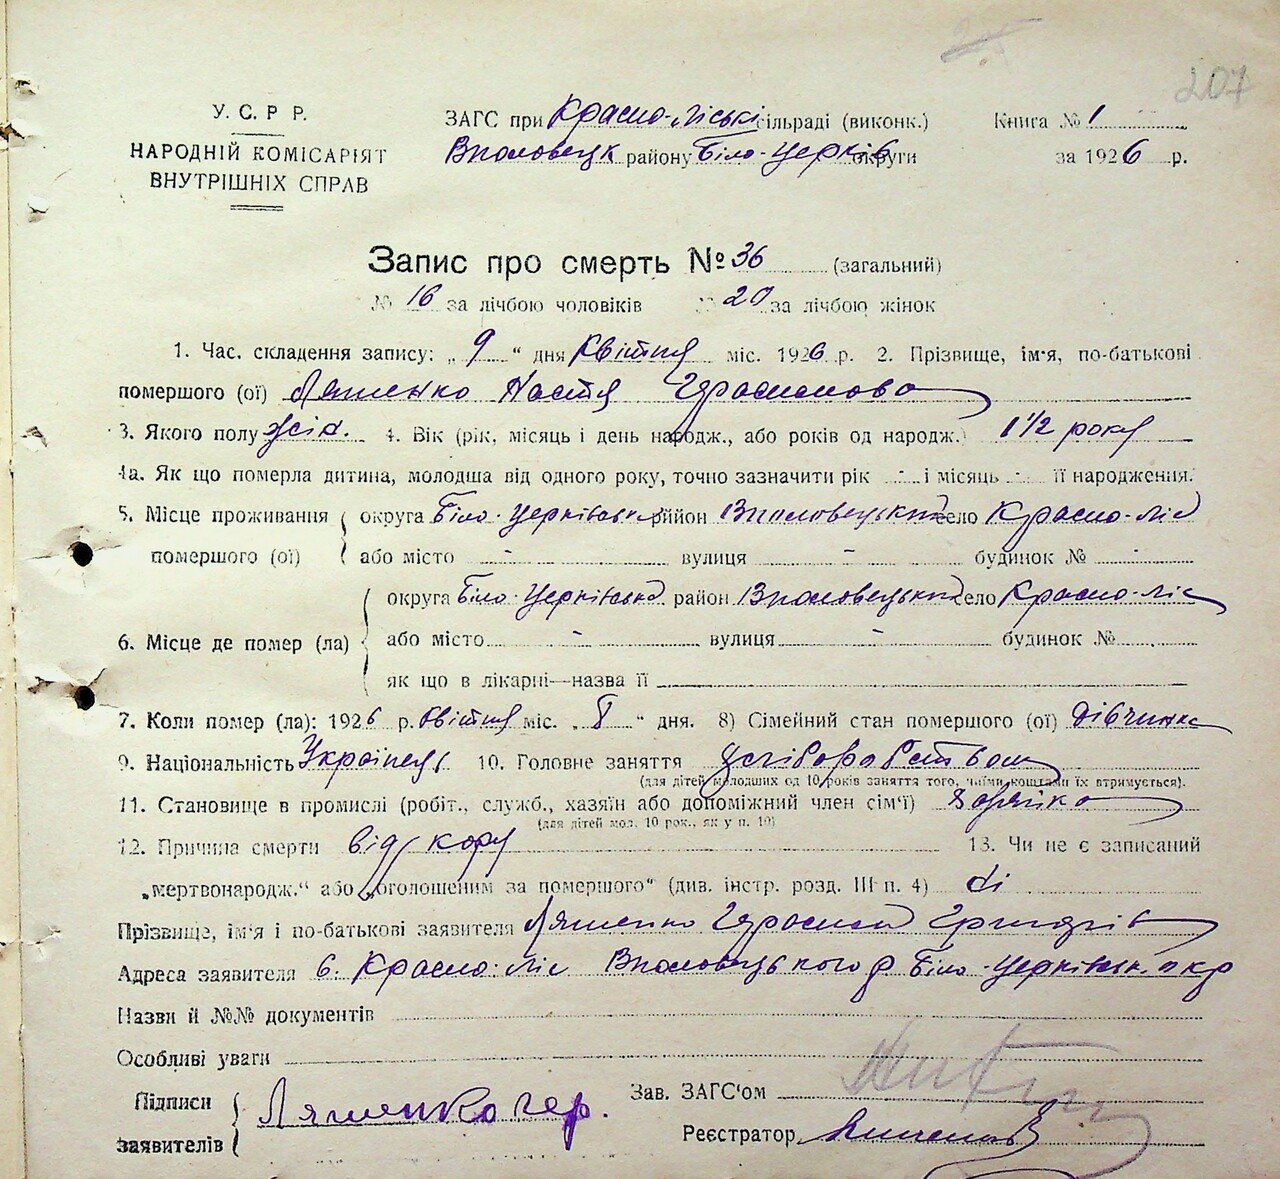 207
У. С. Р Р.
НАРОДНІЙ КОМІСАРІЯТ
ВНУТРІШНІХ СПРАВ
ЗАГС при Красно-Ліські сільраді (виконк.) Книга № 1
району Біло-Церків округи за 1926 р.
Запис про смерть № 36 (загальний)
№ 16 за лічбою чоловіків № 20 за лічбою жінок
1. Час складення запису: „ 9 “ дня Квітня міс. 1926 р. 2. Прізвище, ім'я, по-батькові
помершого (ої) Ляшенко Настя Герасимова
3. Якого полу жін. 4. Вік (рік, місяць і день народж., або років од народж.) 1 1/2 року
4а. Як що померла дитина, молодша від одного року, точно зазначити рік - і місяць - її народження.
5. Місце проживання округа Біло-Церківська район село Красно-Ліс
помершого (ої) або місто - вулиця - будинок № -
округа Біло-Церківська район село Красно-Ліс
6. Місце де помер (ла) або місто - вулиця - будинок №
як що в лікарні—назва її
7. Коли помер (ла): 1926 р. Квітня міс. „ 8 “ дня. 8) Сімейний стан помершого (ої) дівчинка
9. Національність Українець 10. Головне заняття
(для дітей молодших од 10 років заняття того, чиїми коштами їх втримується).
11. Становище в промислі (робіт., служб., хазяїн або допоміжний член сім'ї)
(для дітей мол. 10 рок., як у п. 10)
12. Причина смерти від кору 13. Чи не є записаний
„мертвонародж.“ або „оголошеним за помершого“ (див. інстр. розд. III п. 4) ні
Прізвище, ім'я і по-батькові заявителя Ляшенко Герасим Григорів
Адреса заявителя с. Красно-Ліс р Біло-Церківськ. окр
Назви й №№ документів
Особливі уваги
Підписи
заявителів
Ляшенко Гер.
Зав. ЗАГС'ом
Реєстратор